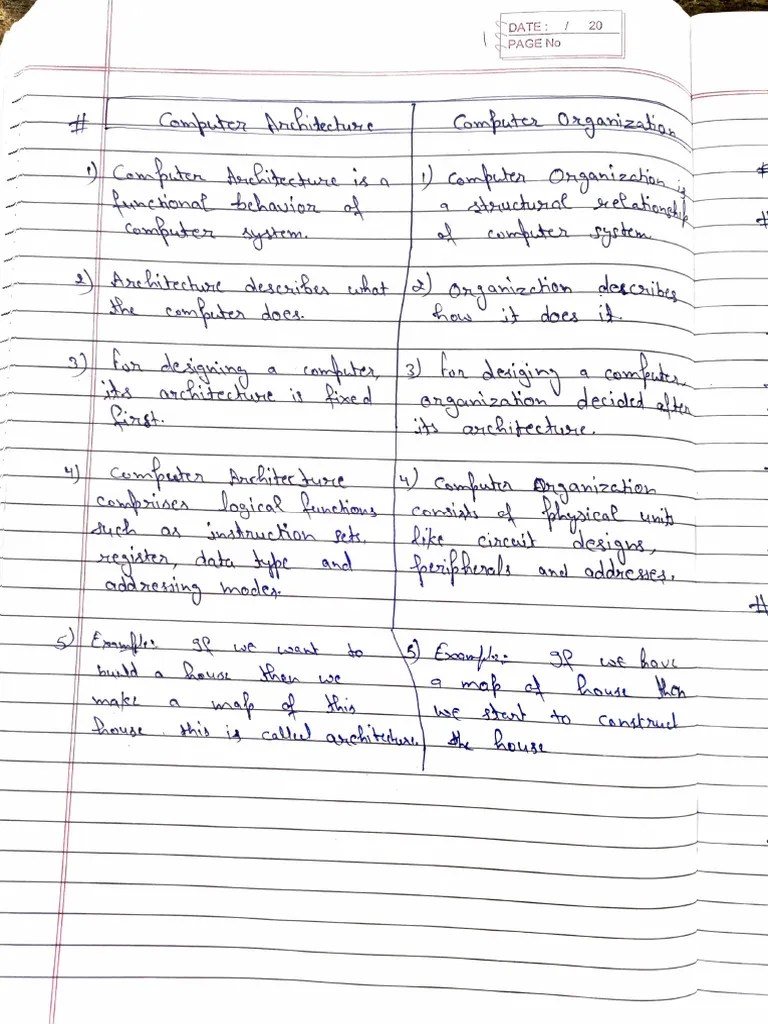 DATE: / 20
PAGE No
# Computer Architecture
1) Computer Architecture is a
functional behavior of
computer system.
2) Architecture describes what
the computer does.
3) For designing a computer,
its architecture is fixed
first.
4) Computer Architecture
comprises logical functions
such as instruction sets,
register, data type and
addressing modes.
5) Example: If we want to
build a house then we
make a map of this
house this is called architecture.
Computer Organization
1) Computer Organization is
a structural relationship
of computer system
2) Organization describes
how it does it.
3) For desiging a computer,
organization decided after
its architecture.
4) Computer Organization
consists of physical units
like circuit designs,
peripherals and addresses.
5) Example: If we have
a map of house then
we start to construct
the house
#
#
#